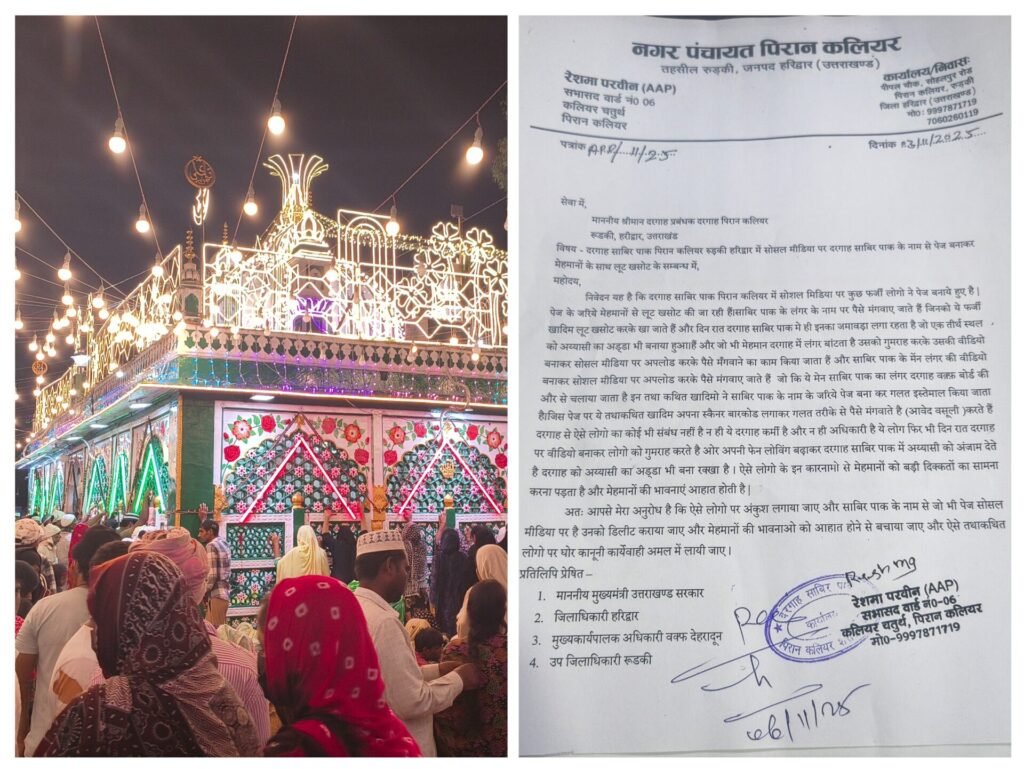 नगर पंचायत पिरान कलियर
तहसील रुड़की, जनपद हरिद्वार (उत्तराखण्ड)
रेशमा परवीन (AAP)
सभासद वार्ड नं0 06
कलियर चतुर्थ
पिरान कलियर
कार्यालय/निवासः
पीपल चौक, सोहलपुर रोड
पिरान कलियर, रुड़की
जिला हरिद्वार (उत्तराखण्ड)
मो0: 9997871719
7060260119
पत्रांक
दिनांक 03/11/2025
सेवा में,
माननीय श्रीमान दरगाह प्रबंधक दरगाह पिरान कलियर
रूडकी, हरीद्वार, उत्तराखंड
विषय - दरगाह साबिर पाक पिरान कलियर रुड़की हरिद्वार में सोसल मीडिया पर दरगाह साबिर पाक के नाम से पेज बनाकर
मेहमानों के साथ लूट खसोट के सम्बन्ध में,
महोदय,
निवेदन यह है कि दरगाह साबिर पाक पिरान कलियर में सोशल मिडिया पर कुछ फर्जी लोगो ने पेज बनाये हुए है|
पेज के जरिये मेहमानों से लूट खसोट की जा रही है।साबिर पाक के लंगर के नाम पर पैसे मंगवाए जाते हैं जिनको ये फर्जी
खादिम लूट खसोट करके खा जाते हैं और दिन रात दरगाह साबिर पाक मे ही इनका जमावड़ा लगा रहता है जो एक तीर्थ स्थल
को अय्याशी का अड्डा भी बनाया हुआ।है और जो भी मेहमान दरगाह में लंगर बांटता है उसको गुमराह करके उसकी वीडियो
बनाकर सोसल मीडिया पर अपलोड करके पैसे मँगवाने का काम किया जाता हैं और साबिर पाक के मेंन लंगर की वीडियो
बनाकर सोशल मीडिया पर अपलोड करके पैसे मंगवाए जाते हैं जो कि ये मेन साबिर पाक का लंगर दरगाह वक़्फ़ बोर्ड की
और से चलाया जाता है इन तथा कथित खादिमो ने साबिर पाक के नाम के जरिये पेज बना कर गलत इस्तेमाल किया जाता
है।जिस पेज पर ये तथाकथित खादिम अपना स्कैनर बारकोड लगाकर गलत तरीके से पैसे मंगवाते है (आवेद वसूली )करते हैं
दरगाह से ऐसे लोगो का कोई भी संबंध नहीं है न ही ये दरगाह कर्मी है और न ही अधिकारी है ये लोग फिर भी दिन रात दरगाह
पर वीडियो बनाकर लोगो को गुमराह करते है ओर अपनी फेन लोविंग बढ़ाकर दरगाह साबिर पाक में अय्यासी को अंजाम देते
है दरगाह को अय्यासी का अड्डा भी बना रक्खा है | ऐसे लोगो के इन कारनामो से मेहमानों को बड़ी दिक्कतों का सामना
करना पड़ता है और मेहमानों की भावनाएं आहात होती है |
अतः आपसे मेरा अनुरोध है कि ऐसे लोगो पर अंकुश लगाया जाए और साबिर पाक के नाम से जो भी पेज सोसल
मीडिया पर है उनको डिलीट कराया जाए और मेहमानों की भावनाओ को आहात होने से बचाया जाए और ऐसे तथाकथित
लोगो पर घोर कानूनी कार्येवाही अमल में लायी जाए।
प्रतिलिपि प्रेषित –
1. माननीय मुख्यमंत्री उत्तराखण्ड सरकार
2. जिलाधिकारी हरिद्वार
3. मुख्यकार्यपालक अधिकारी वक्फ देहरादून
4. उप जिलाधिकारी रूडकी
दरगाह साबिर पाक
कार्यालय
पिरान कलियर
रेशमा परवीन (AAP)
सभासद वार्ड नं0-06
कलियर चतुर्थ, पिरान कलियर
मो0-9997871719